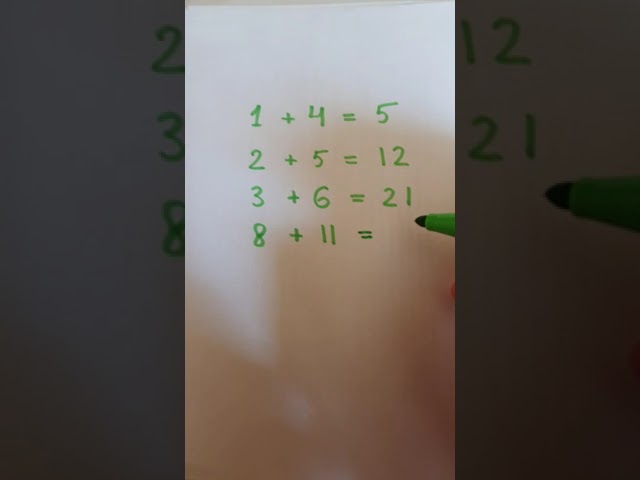 1 + 4 = 5
2 + 5 = 12
3 + 6 = 21
8 + 11 =